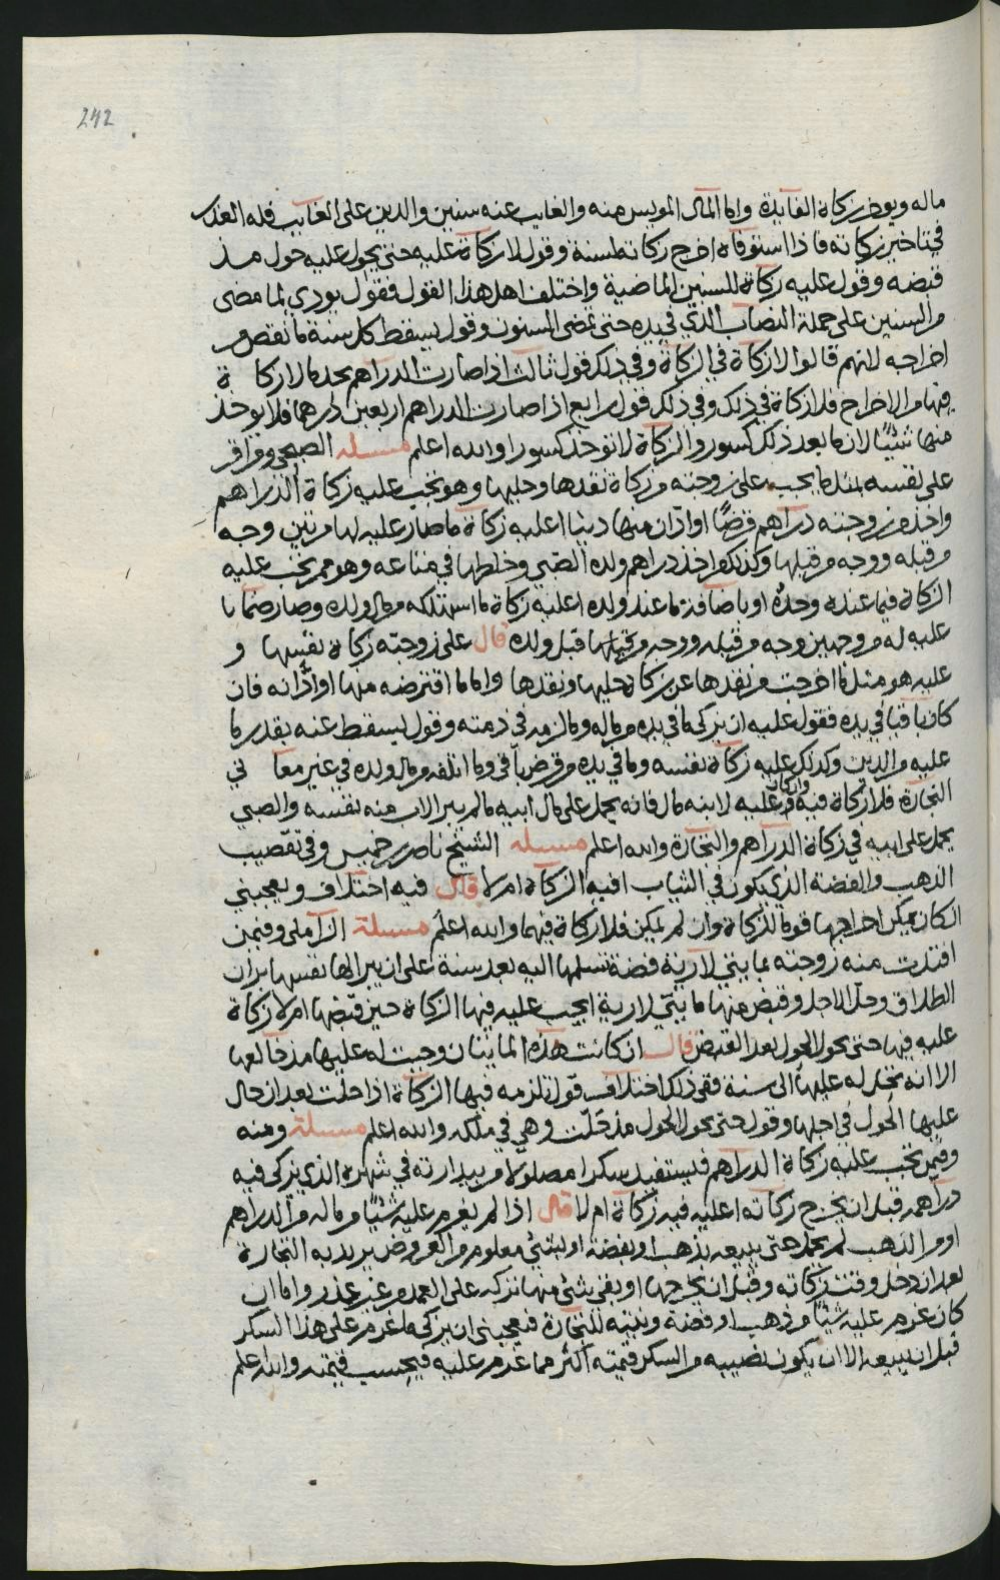 242
ماله ويودي زكاة الفايدة واما المال المويس منه والغايب عنه سنين والدين على الغايب فله العذر
في تاخير زكاته فاذا استوفاه اخرج زكاته لسنة وقول لا زكاة عليه حتى يحول عليه حول مذ
قبضه وقول عليه زكاة للسنين الماضية واختلف اهل هذا القول فقول يودي لما مضى
من السنين على جملة النصاب الذي في يده حتى تمضي السنون وقول يسقط كل سنة ما نقص من
اخراجه لانهم قالوا لا زكاة في الزكاة وفي ذلك قول ثالث اذا صارت الدراهم بحد ما لا زكاة
فيها من الاخراج فلا زكاة في ذلك وفي ذلك قول رابع اذا صارت الدراهم اربعين درهما فلا يوخذ
منها شيئا لان ما بعد ذلك كسور والزكاة لا توخذ كسورا والله اعلم مسئلة الصبحي ومن اقر
على نفسه بمثل ما يجب على زوجته من زكاة نقدها وحليها وهو تجب عليه زكاة الدراهم
واخذ من زوجته دراهم قرضا او ادّان منها دينا اعليه زكاة ما صار عليه لها مرتين وجه
من قبله ووجه من قبلها وكذلك اخذ دراهم ولده الصبي وخلطها في متاعه وهو ممن تجب عليه
الزكاة فيما عنده وحده او باضافة ما عند ولده اعليه زكاة ما استهلكه من مال ولده وصار ضمانا
عليه له من وجهين وجه من قبله ووجه من قبل ولده قال على زوجته زكاة نفسها و
عليه هو مثل ما اخرجت من نقدها عن زكاة حليها ونقدها واما ما اقترضه منها او ادّانه فان
كان باقيا في يده فقول عليه ان يزكي ما في يده من ماله وما لزمه في ذمته وقول يسقط عنه بقدر ما
عليه من الدين وكذلك عليه زكاة نفسه وما في يده من قرض باقي وما اتلفه من مال ولده في غير معاني
التجارة فلا زكاة فيه وان كان عليه لابنه مال فانه يحمل على مال ابيه ما لم يبر الاب منه نفسه والصبي
يحمل على ابيه في زكاة الدراهم والتجارة والله اعلم مسئلة الشيخ ناصر بن خميس وفي تقصيب
الذهب والفضة الذي يكون في الثياب افيه الزكاة ام لا قال فيه اختلاف ويعجبني
ان كان يمكن اخراجها قوم للزكاة وان لم يمكن فلا زكاة فيهما والله اعلم مسئلة الزاملي وفيمن
افتدت منه زوجته بمايتي لارية فضة تسلمها اليه بعد سنة على ان يبرا لها نفسها بران
الطلاق وحل الاجل وقبض منها مايتي لارية ايجب عليه فيها الزكاة حين قبضها ام لا زكاة
عليه فيها حتى يحول الحول بعد القبض قال ان كانت هذه المايتان وجبت له عليها مذ خالعها
الا انه تحل له عليها الى سنة ففي ذلك اختلاف قول تلزمه فيها الزكاة اذا حلت بعد ان حال
عليها الحول في اجلها وقول حتى يحول الحول مذ حلّت وهي في ملكه والله اعلم مسئلة ومنه
وفيمن تجب عليه زكاة الدراهم فيستفيد سكرا مصلولا من بيدارته في شهره الذي يزكي فيه
دراهمه قبل ان يخرج زكاته اعليه فيه زكاة ام لا قال اذا لم يغرم عليه شيئا من ماله من الدراهم
او من الذهب لم يحمل حتى يبيعه بذهب او بفضة او بشي معلوم من العروض يريد به التجارة
بعد ان دخل وقت زكاته وقبل ان يخرجها او بقي شي منها تركه على العمد من غير عذر واما ان
كان غرم عليه شيئا من ذهب او فضة ونيته للتجارة فيعجبني ان يزكي ما غرم على هذا السكر
قبل ان يبيعه الا ان يكون نصيبه من السكر قيمته اكثر مما غرم عليه فيحسب قيمته والله اعلم